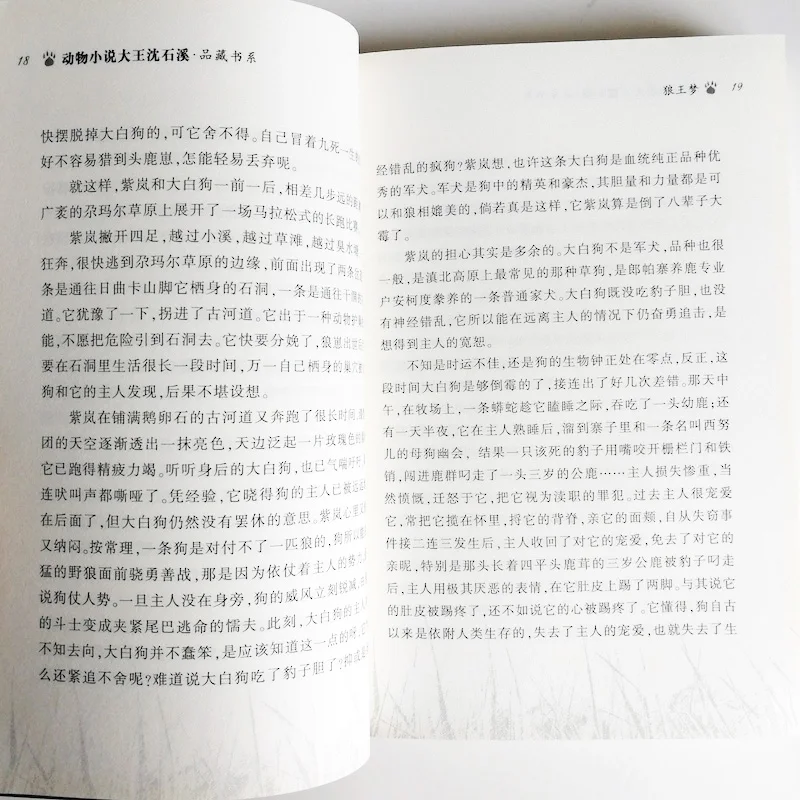 18 动物小说大王沈石溪·品藏书系
快摆脱掉大白狗的，可它舍不得。自己冒着九死一生
好不容易猎到头鹿崽，怎能轻易丢弃呢。
就这样，紫岚和大白狗一前一后，相差几步远的
广袤的尕玛尔草原上展开了一场马拉松式的长跑比赛
紫岚撇开四足，越过小溪，越过草滩，越过臭水塘
狂奔，很快逃到尕玛尔草原的边缘，前面出现了两条
条是通往日曲卡山脚它栖身的石洞，一条是通往干涸
道。它犹豫了一下，拐进了古河道。它出于一种动物护
能，不愿把危险引到石洞去。它快要分娩了，狼崽出世
要在石洞里生活很长一段时间，万一自己栖身的巢穴
狗和它的主人发现，后果不堪设想。
紫岚在铺满鹅卵石的古河道又奔跑了很长时间，
团的天空逐渐透出一抹亮色，天边泛起一片玫瑰色的
它已跑得精疲力竭。听听身后的大白狗，也已气喘吁吁
连吠叫声都嘶哑了。凭经验，它晓得狗的主人已被远远
在后面了，但大白狗仍然没有罢休的意思。紫岚心里
又纳闷。按常理，一条狗是对付不了一匹狼的，狗所以能
猛的野狼面前骁勇善战，那是因为依仗着主人的势力
说狗仗人势。一旦主人没在身旁，狗的威风立刻锐减，
的斗士变成夹紧尾巴逃命的懦夫。此刻，大白狗的主人
不知去向，大白狗并不蠢笨，是应该知道这一点的呀，
么还紧追不舍呢？难道说大白狗吃了豹子胆了？抑或是
狼王梦 19
经错乱的疯狗？紫岚想，也许这条大白狗是血统纯正品种优
秀的军犬。军犬是狗中的精英和豪杰，其胆量和力量都是可
以和狼相媲美的，倘若真是这样，它紫岚算是倒了八辈子大
霉了。
紫岚的担心其实是多余的。大白狗不是军犬，品种也很
一般，是滇北高原上最常见的那种草狗，是郎帕寨养鹿专业
户安柯度豢养的一条普通家犬。大白狗既没吃豹子胆，也没
有神经错乱，它所以能在远离主人的情况下仍奋勇追击，是
想得到主人的宽恕。
不知是时运不佳，还是狗的生物钟正处在零点，反正，这
段时间大白狗是够倒霉的了，接连出了好几次差错。那天中
午，在牧场上，一条蟒蛇趁它瞌睡之际，吞吃了一头幼鹿；还
有一天半夜，它在主人熟睡后，溜到寨子里和一条名叫西努
儿的母狗幽会，结果一只该死的豹子用嘴咬开栅栏门和铁
销，闯进鹿群叼走了一头三岁的公鹿……主人损失惨重，当
然愤慨，迁怒于它，把它视为渎职的罪犯。过去主人很宠爱
它，常把它揽在怀里，捋它的背脊，亲它的面颊，自从失窃事
件接二连三发生后，主人收回了对它的宠爱，免去了对它的
亲昵，特别是那头长着四平头鹿茸的三岁公鹿被豹子叼走
后，主人用极其厌恶的表情，在它肚皮上踢了两脚。与其说它
的肚皮被踢疼了，还不如说它的心被踢疼了。它懂得，狗自古
以来是依附人类生存的，失去了主人的宠爱，也就失去了生